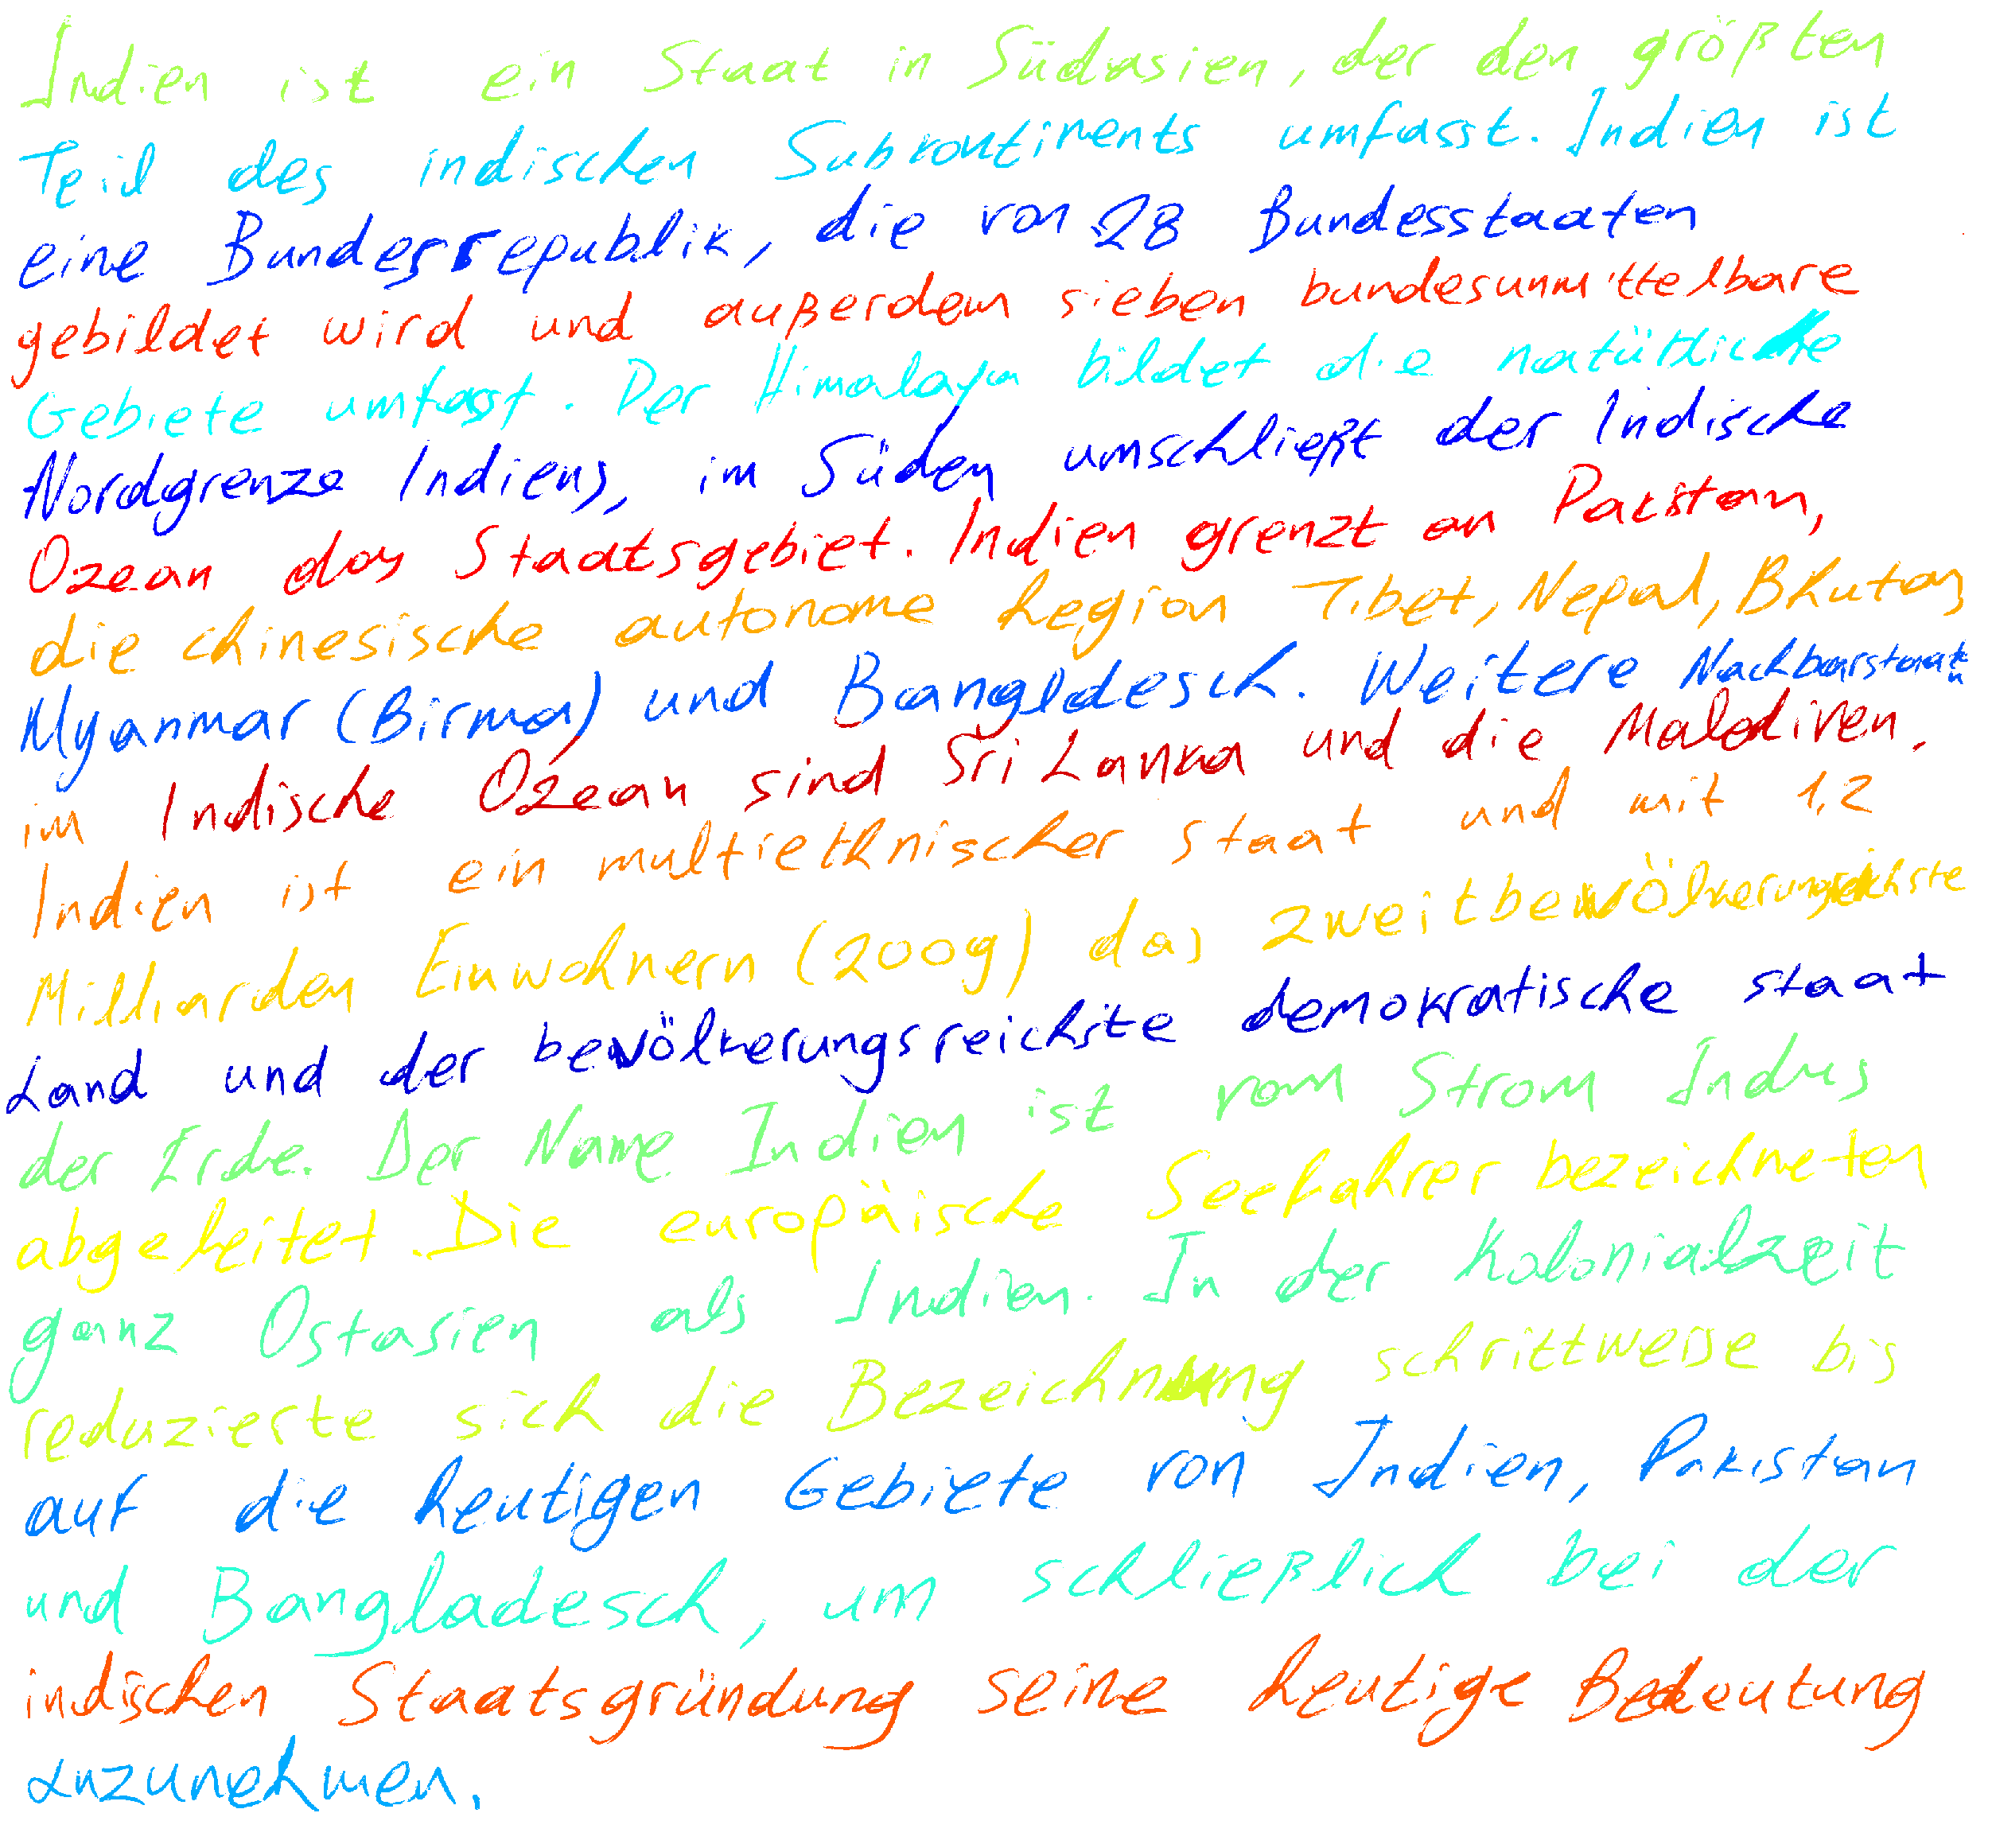 Indien ist ein Staat in Südasien, der den größten
Teil des indischen Subkontinents umfasst. Indien ist
eine Bundesrepublik, die von 28 Bundesstaaten
gebildet wird und außerdem sieben bundesunmittelbare
Gebiete umfasst. Der Himalaya bildet die natürliche
Nordgrenze Indiens, im Süden umschließt der Indische
Ozean das Staatsgebiet. Indien grenzt an Pakistan,
die chinesische autonome Region Tibet, Nepal, Bhutan,
Myanmar (Birma) und Bangladesch. Weitere Nachbarstaaten
im Indische Ozean sind Sri Lanka und die Malediven.
Indien ist ein multiethnischer Staat und mit 1,2
Milliarden Einwohnern (2009) das zweitbevölkerungsreichste
Land und der bevölkerungsreichste demokratische staat
der Erde. Der Name Indien ist vom Strom Indus
abgeleitet. Die europäische Seefahrer bezeichneten
ganz Ostasien als Indien. In der Kolonialzeit
reduzierte sich die Bezeichnung schrittweise bis
auf die heutigen Gebiete von Indien, Pakistan
und Bangladesch, um schließlich bei der
indischen Staatsgründung seine heutige Bedeutung
anzunehmen.